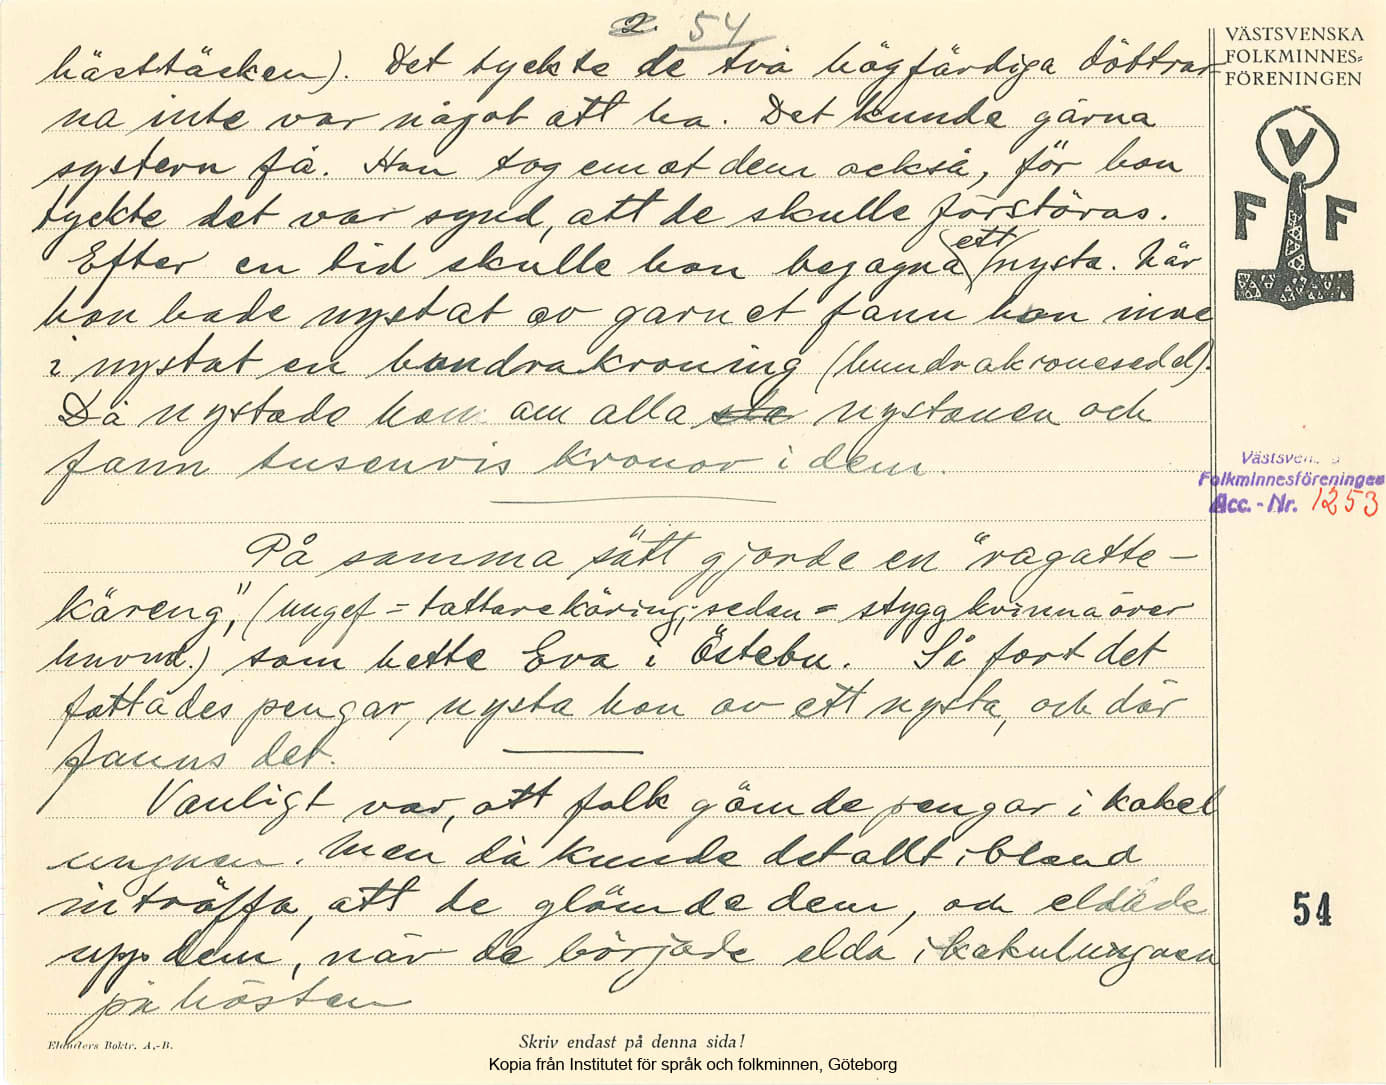 2. 54
hästtäcken). Det tyckte de två högfärdiga döttrar-
na inte var något att ha. Det kunde gärna
systern få. Hon tog emot dem också, för hon
tyckte det var synd, att de skulle förstöras.
Efter en tid skulle hon begagna ett nysta. När
hon hade nystat av garnet fann hon inne
i nystat en hondrakroning (hundrakronesedel).
Då nystade hon om alla nystonen och
fann tusenvis kronor i dem.
På samma sätt gjorde en "ragatte-
käreng", (ungef = tattarekäring; sedan = stygg kvinna över
huvud.) som hette Eva i Östebu. Så fort det
fattades pengar, nysta hon av ett nysta, och där
fanns det.
Vanligt var, att folk gömde pengar i kakel
ungnen. Men då kunde det allt ibland
inträffa, att de glömde dem, och eldade
upp dem, när de började elda i kakulungnen
på hösten
VÄSTSVENSKA
FOLKMINNES-
FÖRENINGEN
V
F F
Folkminnesföreningen
Acc.-Nr. 1253
54
Elanders Boktr. A.-B.
Skriv endast på denna sida!
Kopia från Institutet för språk och folkminnen, Göteborg